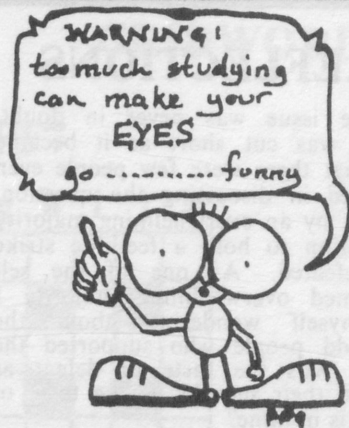 WARNING!
too much studying
can make your
EYES
go ............ funny